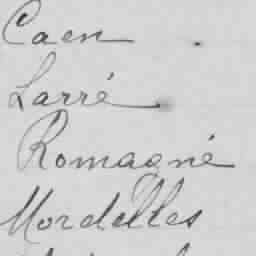 Caen
Larré
Romagné
Mordelles